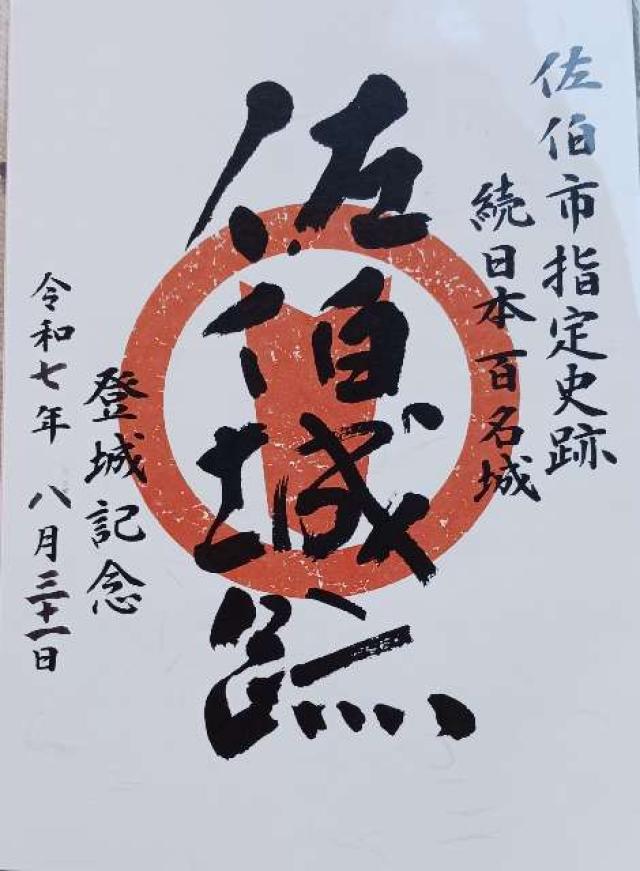 佐伯市指定史跡
続日本百名城
佐伯城跡
登城記念
令和七年 八月三十一日